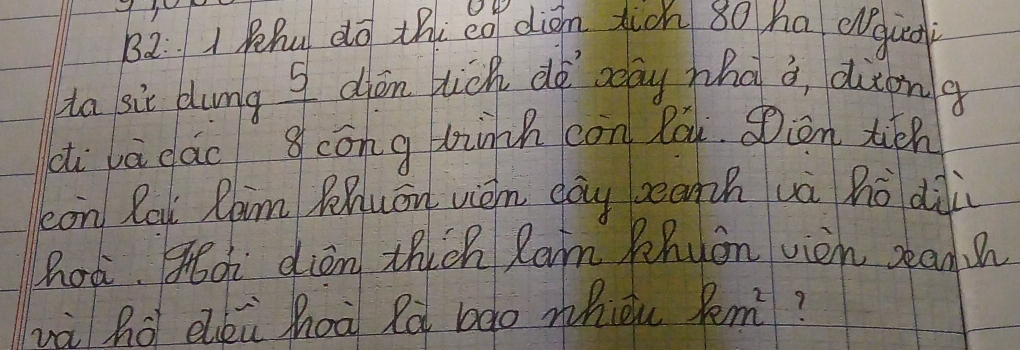 B2: 1 khu đô thị có diện tích 80 ha Người
ta sử dụng 5/8 diện tích để xây nhà ở, đường
đi và các công trình còn lại. Diện tích
còn lại làm khuôn viên cây xanh và hồ điều
hoà. Hỏi diện thích làm khuôn viên xanh
và hồ điều hoà là bao nhiêu km² ?